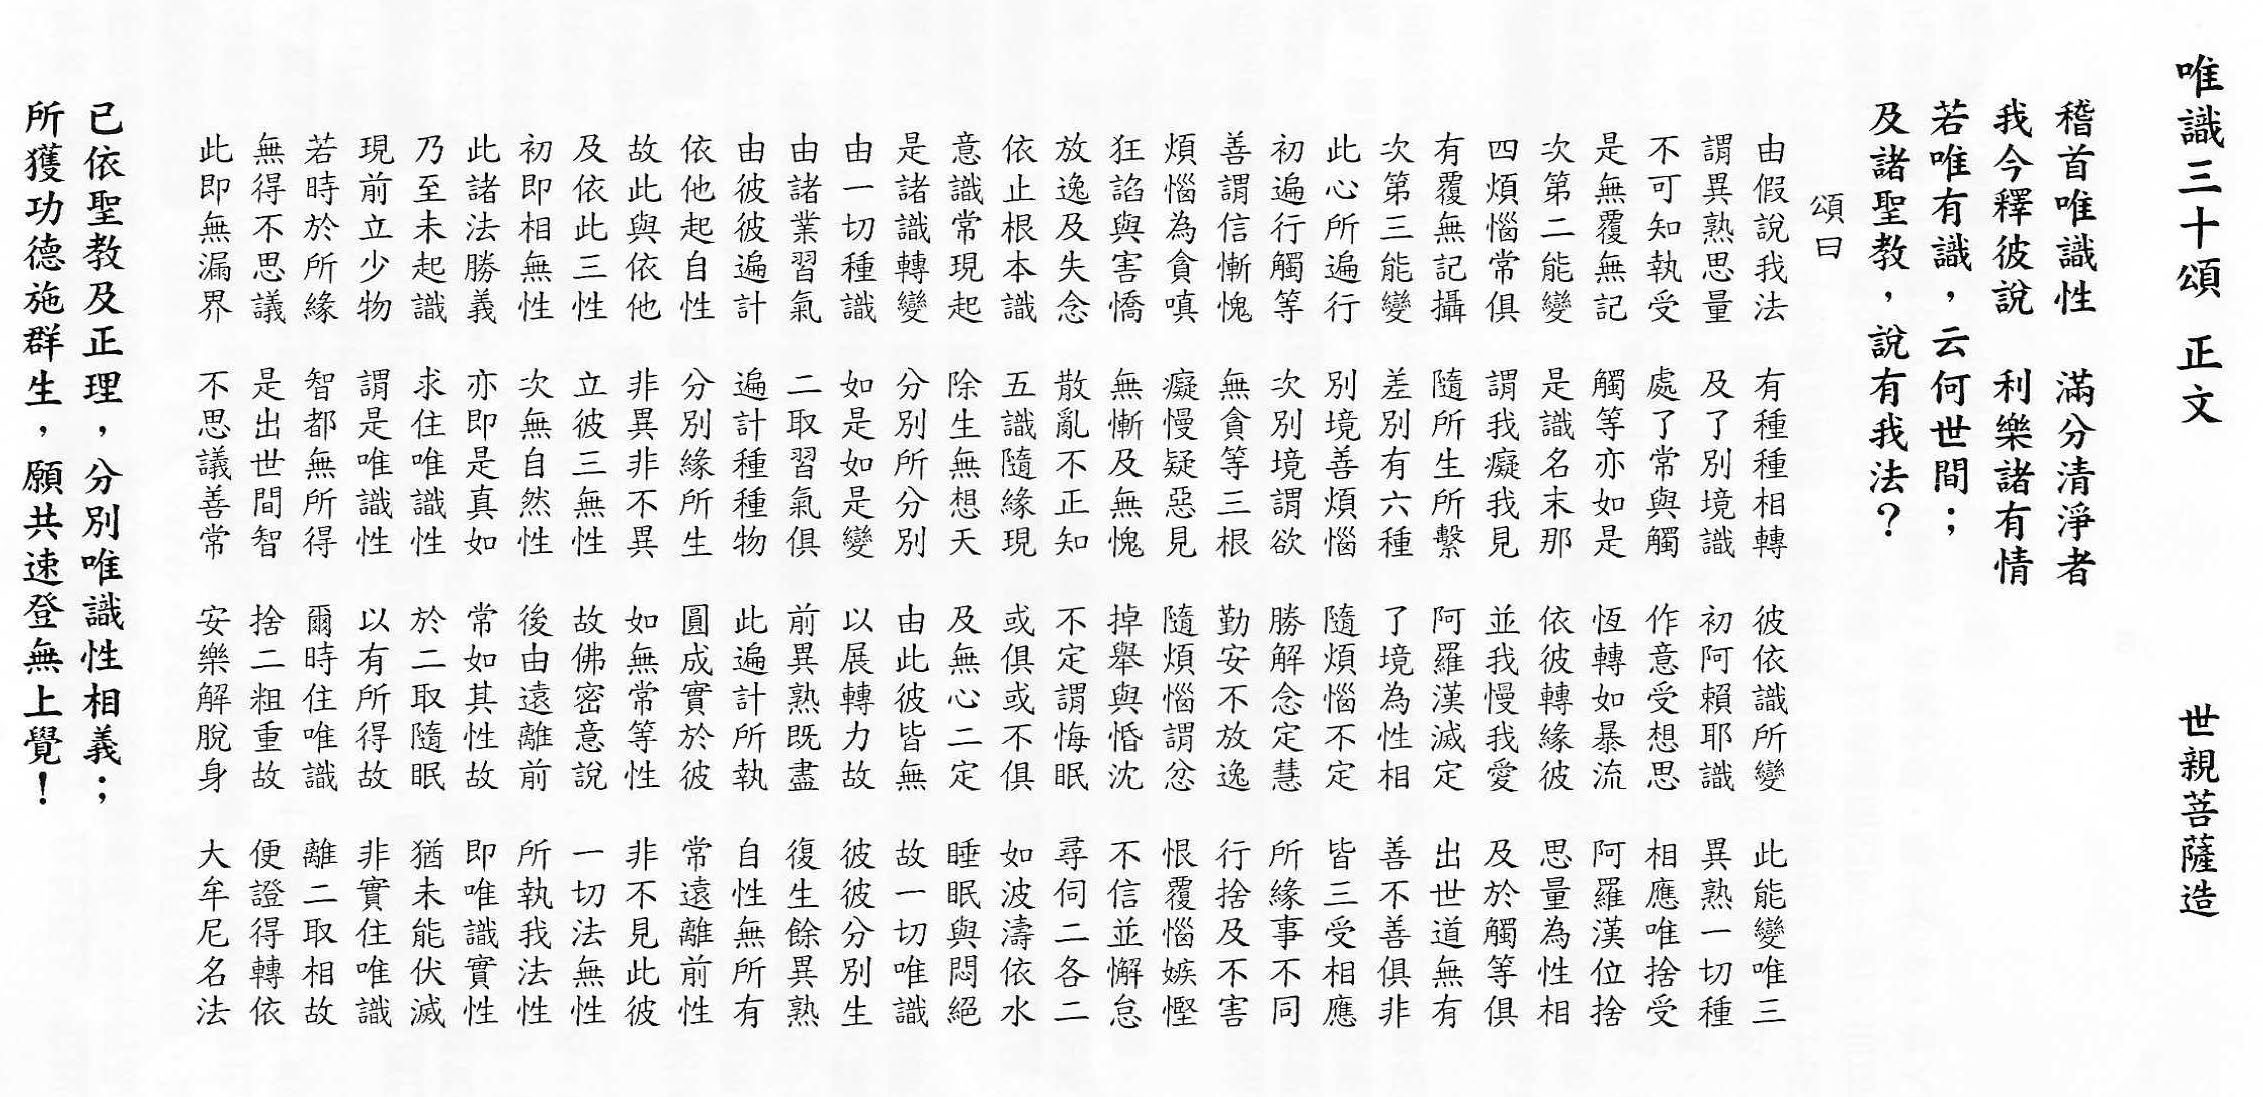 唯識三十頌 正文 世親菩薩造
稽首唯識性 滿分清淨者
我今釋彼說 利樂諸有情
若唯有識，云何世間；
及諸聖教，說有我法？
頌曰
由假說我法 有種種相轉 彼依識所變 此能變唯三
謂異熟思量 及了別境識 初阿賴耶識 異熟一切種
不可知執受 處了常與觸 作意受想思 相應唯捨受
是無覆無記 觸等亦如是 恆轉如暴流 阿羅漢位捨
次第二能變 是識名末那 依彼轉緣彼 思量為性相
四煩惱常俱 謂我癡我見 並我慢我愛 及於觸等俱
有覆無記攝 隨所生所繫 阿羅漢滅定 出世道無有
次第三能變 差別有六種 了境為性相 善不善俱非
此心所遍行 別境善煩惱 隨煩惱不定 皆三受相應
初遍行觸等 次別境謂欲 勝解念定慧 所緣事不同
善謂信慚愧 無貪等三根 勤安不放逸 行捨及不害
煩惱為貪嗔 癡慢疑惡見 隨煩惱謂忿 恨覆惱嫉慳
狂諂與害憍 無慚及無愧 掉舉與惛沈 不信並懈怠
放逸及失念 散亂不正知 不定謂悔眠 尋伺二各二
依止根本識 五識隨緣現 或俱或不俱 如波濤依水
意識常現起 除生無想天 及無心二定 睡眠與悶絕
是諸識轉變 分別所分別 由此彼皆無 故一切唯識
由一切種識 如是如是變 以展轉力故 彼彼分別生
由諸業習氣 二取習氣俱 前異熟既盡 復生餘異熟
由彼彼遍計 遍計種種物 此遍計所執 自性無所有
依他起自性 分別緣所生 圓成實於彼 常遠離前性
故此與依他 非異非不異 如無常等性 非不見此彼
及依此三性 立彼三無性 故佛密意說 一切法無性
初即相無性 次無自然性 後由遠離前 所執我法性
此諸法勝義 亦即是真如 常如其性故 即唯識實性
乃至未起識 求住唯識性 於二取隨眠 猶未能伏滅
現前立少物 謂是唯識性 以有所得故 非實住唯識
若時於所緣 智都無所得 爾時住唯識 離二取相故
無得不思議 是出世間智 捨二粗重故 便證得轉依
此即無漏界 不思議善常 安樂解脫身 大牟尼名法
已依聖教及正理，分別唯識性相義；
所獲功德施群生，願共速登無上覺！